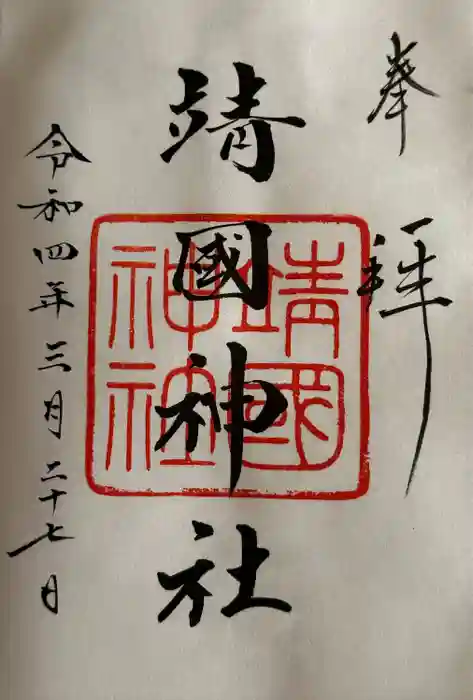 奉拝
靖國神社
靖國
神社
令和四年三月二十七日